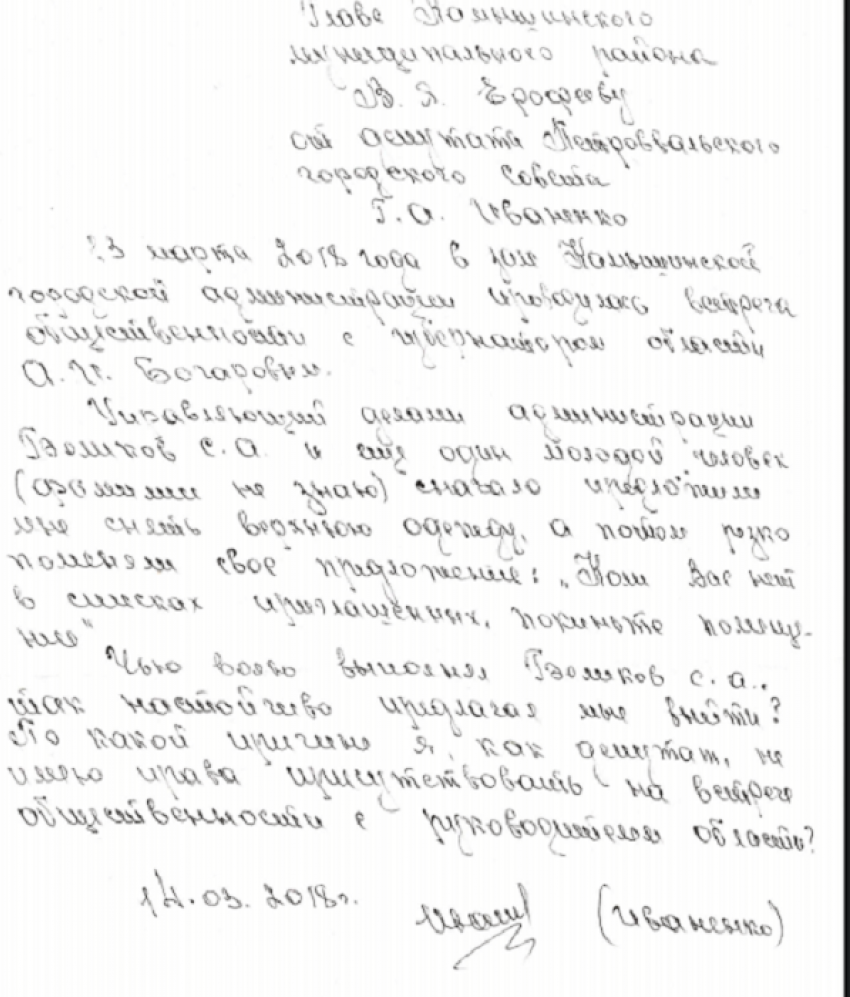 Главе Камышинского
муниципального района
В. Я. Ерофееву
от депутата Петроввальского
городского совета
Г. А. Иваненко
13 марта 2018 года в зале Камышинской
городской администрации проводилась встреча
общественности с губернатором области
А. И. Бочаровым.
Управляющий делами администрации
С. А. и ещё один молодой человек
(фамилии не знаю) сначала предложили
мне снять верхнюю одежду, а потом резко
поменяли своё предложение: „Вас нет
в списках приглашённых, покиньте помеще-
ние“
Чью волю выполнял С. А.,
так настойчиво предлагая мне выйти?
По какой причине я, как депутат, не
имею права присутствовать на встрече
общественности с руководителем области?
14.03.2018г.
(Иваненко)